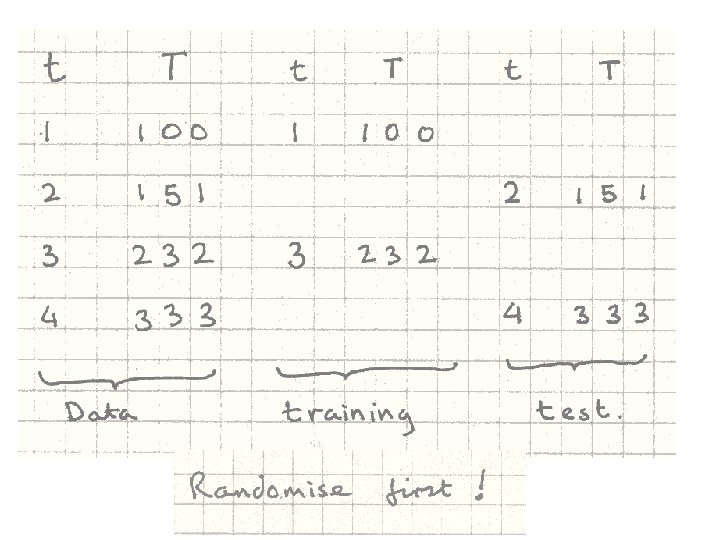 t T t T t T
1 100 1 100
2 151 2 151
3 232 3 232
4 333 4 333
Data training test.
Randomise first!